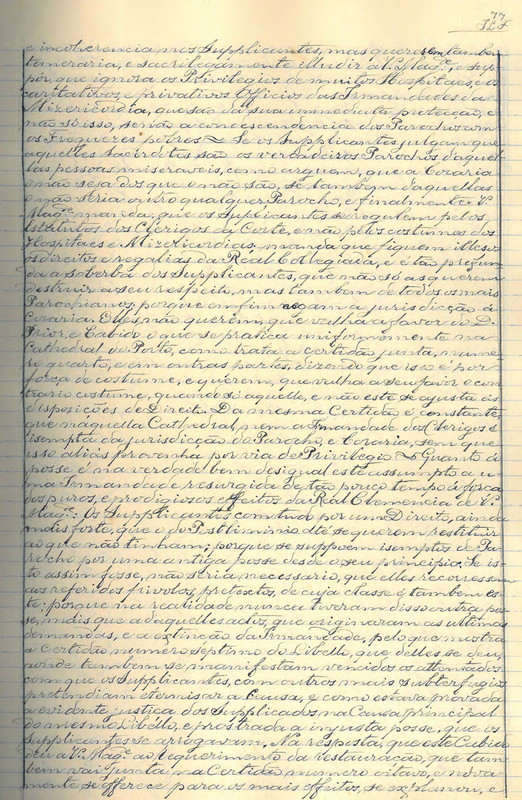 77
e incoherencia nos Supplicantes, mas querem tambem
temeraria, e sacrilegamente illudir a V. Mag.de, e sup-
pôr, que ignora os Privilegios de muitos Hospitaes, e o
caritativo, e privativos Officios das Irmandades da
Mizericordia, que são da sua immediata protecção, e
não só isso, senão a condescendencia dos Parochos com
os Freguezes pobres ~ Se os Supplicantes julgam que
aquelles Sacerdotes são os verdadeiros Parochos daquel-
las pessoas miseraveis, como arguem, que a Coraria
o não seja dos que o não são, se tambem daquellas
o não seria outro qualquer Parocho, e finalmente V.
Mag.de manda, que os Supplicantes se regulem pelos
Estatutos dos Clerigos da Corte, e não pelos costumes dos
Hospitaes e Mizericordias, manda que fiquem illesos
os direitos e regalias da Real Collegiada, e é tão profun-
da a soberba dos Supplicantes, que não só as querem
destruir a seu respeito, mas tambem de todos os mais
Parochianos; porque emfim negam a jurisdicção á
Coraria. Elles, não querem, que valha a favor do D.
Prior, e Cabido o que se pratica uniformemente na
Cathedral do Porto, como trata a Certidão junta, nume-
ro quarto, e em outras partes, dizendo que isso é por
força de costume, e querem, que valha a seu favor o con-
trario costume, quando só aquelle, e não este se ajusta ás
disposições de Direito. Da mesma Certidão é constante,
que naquella Cathedral, nem a Irmandade dos Clerigos é
isempta da jurisdicção do Parocho, e Coraria, sem que
isso aliás provenha por via de Privilegio ~ Quanto á
posse é na verdade bem desigual este assumpto a u-
ma Irmandade resurgida de tão pouco tempo á força
dos puros, e prodigiosos effeitos da Real Clemencia de V.
Mag.de: Os Supplicantes comtudo por um Direito, ainda
mais forte, que o do Postliminio até se querem restituir
ao que não tinham; porque se suppoem isemptos de Pa-
rocho por uma antiga posse desde o seu principio. Se is-
to assim fosse, não seria necessario, que elles recorressem
aos referidos frivolos, pretextos, de cuja classe é tambem es-
te: porque na realidade nunca tiveram disso outra pos-
se, mais que a daquelles actos, que originaram as ultimas
demandas, e a extincção da Irmandade, pelo que mostra
a Certidão numero septimo do Libello, que delles se deu,
aonde tambem se manifestam vencidos os attentados
com que os Supplicantes, com outros mais subterfugios
pretendiam eternisar a Causa, e como estava provada
a evidente justiça dos Supplicados na Causa principal
do mesmo Libello, e prostrada a injusta posse, que os
Supplicantes se arrogavam. Na resposta, que este Cabido
deu a V. Mag.de ao requerimento da restauração, que tam-
bem vai junta na Certidão numero oitavo, e nova-
mente se offerece para os mais effeitos, se explanou, e